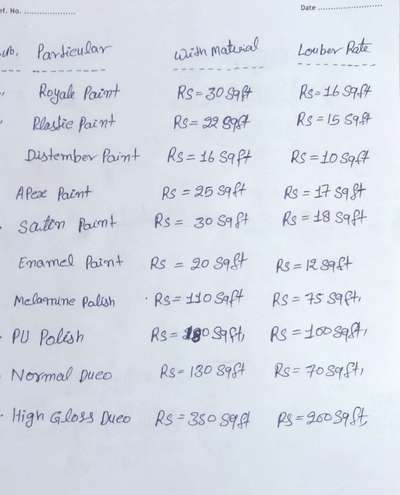 ef. No. ........................ Date ........................
no. Particular With Matural Louber Rate
Royale Paint RS=30 Sqft RS=16 Sqft
Plastic Paint RS=22 Sqft RS=15 Sqft
Distember Paint RS=16 Sqft RS=10 Sqft
Apex Paint RS=25 Sqft RS=17 Sqft
Saten Paint RS=30 Sqft RS=18 Sqft
Enamel Paint RS=20 Sqft RS=12 Sqft
Melamine Palish RS=110 Sqft RS=75 Sqft,
PU Polish RS= Sqft, RS=100 Sqft,
Normal Duco RS=130 Sqft RS=70 Sqft,
High Gloss Duco RS=350 Sqft RS=200 Sqft,